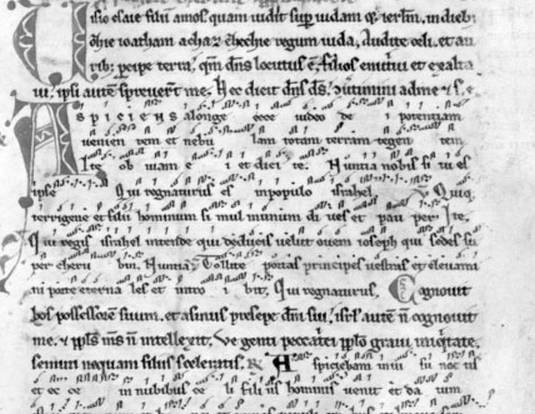 Uisio esaie filii amos quam uidit sup iudam & ierlm, in dieb
ozie ioatham achaz ezechie regum iuda, Audite celi. et au
rib; pcipe terra, qm dns locutus e, filios enutriui et exalta
ui, ipsi aute spreuert me. Hec dicit dns ds, Cuertimini ad me & s, e
Aspiciens alonge ecce uideo de i potentiam
uenien tem et nebu lam totam terram tegen tem
Ite ob uiam e i et dici te. Nuntia nobis si tu es
ipse Qui regnaturus es inpopulo israhel Quiq,
terrigene et filii hominum si mul inunum di ues et pau per Ite,
Qui regis israhel intende qui deducis uelut ouem ioseph qui sedes su
per cheru bin, Nuntia, Tollite portas principes uestras et eleuami
ni porte eternales et intro i bit, Qui regnaturus, Cognouit
bos possessore suum, et asinus presepe dni sui, isrl aute n cognouit
me, & ppls ms n intellexit, Ve genti peccatrici pplo graui iniqitate,
semini nequam filiis sceleratis, R Aspiciebam in uisu noctis
et ec ce in nubibus ce li filius hominis uenit et da tum